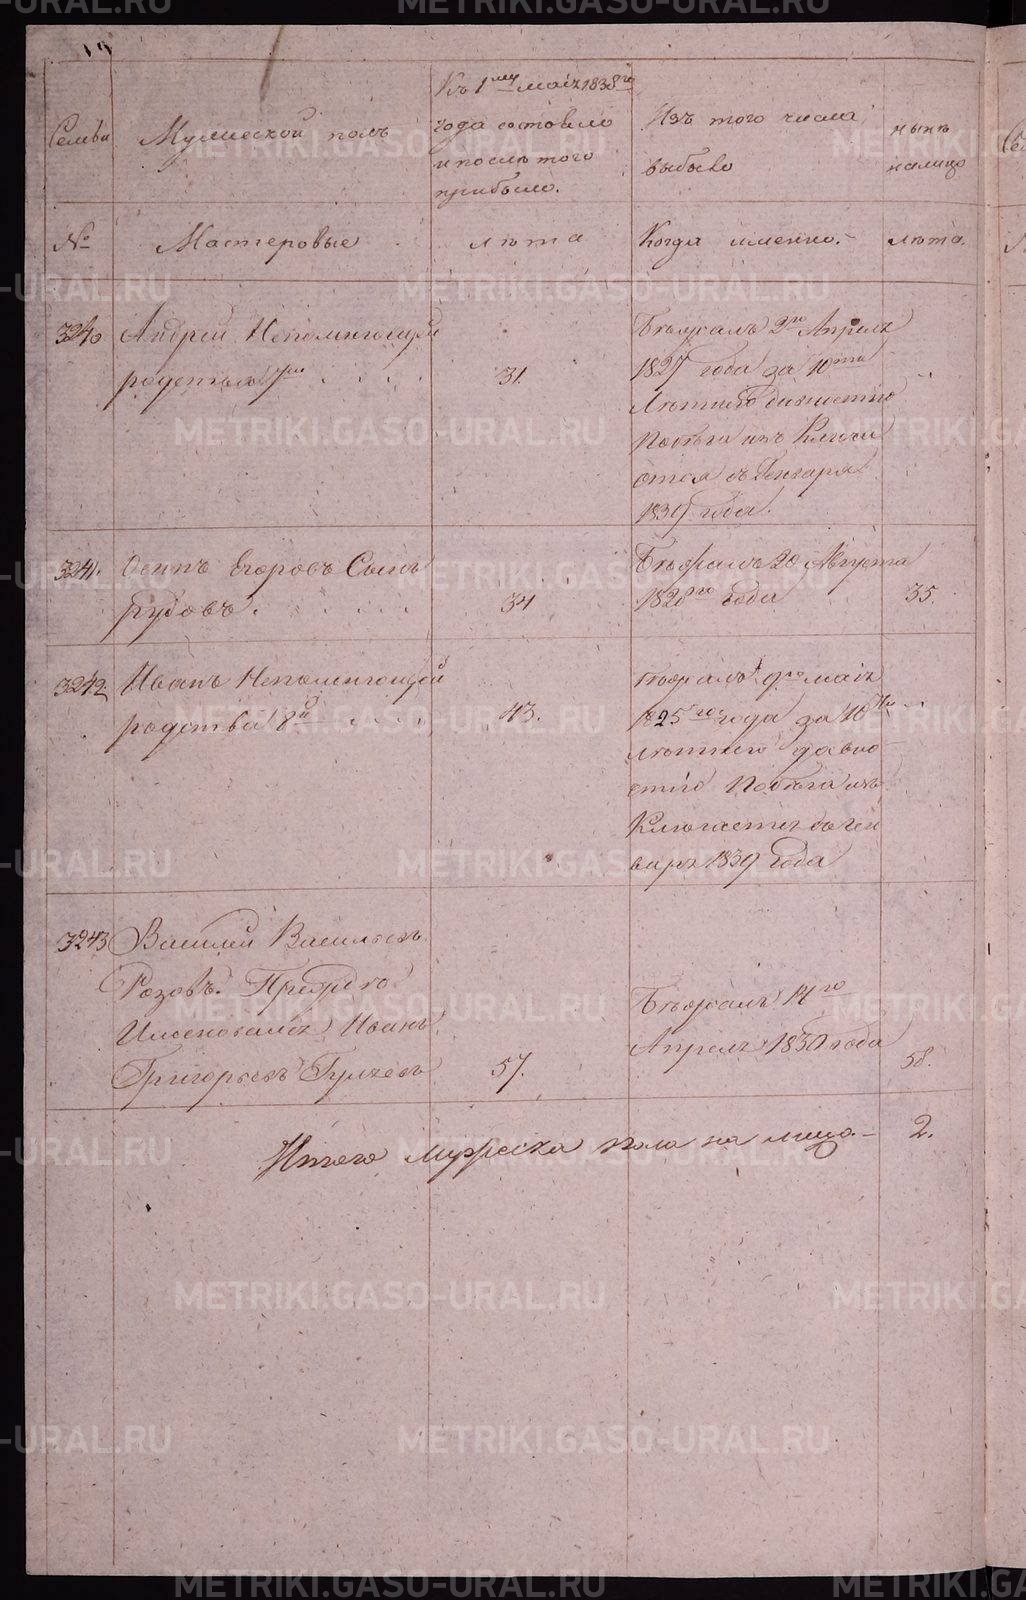 Семьи
Мужеской полъ
Къ 1му маія 1838го
года состояло
и послѣ того
прибыло.
Изъ того числа
выбыло
нынѣ
налицо
№
Мастеровые
лѣта
Когда именно.
лѣта.
3240
Андрей Непомнющій
родства 7й
31.
Бѣжалъ 2го Апреля
1827 года за 10ти
Лѣтнею давностію
Побѣга изъ
съ Генваря
1839 года.
3241.
Осипъ Егоровъ Сынъ
34
Бѣжалъ 20 Августа
1828го года
35.
3242.
Иванъ Непомнющей
родства 8й
43.
Бѣжалъ 9го маія
1825го года за 10ти
лѣтнею давно
стію Побѣга изъ
Ген
варя 1839 года
3243
Василий Васильевъ
Розовъ. Прежде
Именовался Иванъ
Григорьевъ
57.
Бѣжалъ 14го
Апреля 1830 года
58.
Итого мужеска пола на лицо
2.
METRIKI.GASO-URAL.RU